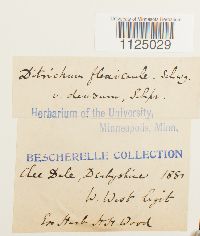 University of Minnesota Herbarium
1125029
Ditrichum flexicaule. Schwg.
v. densum, Schpr.
Herbarium of the University,
Minneapolis, Minn.
BESCHERELLE COLLECTION
Chee Dale, Derbyshire 1881
W. West legit
Ex Herb. H. H. Wood